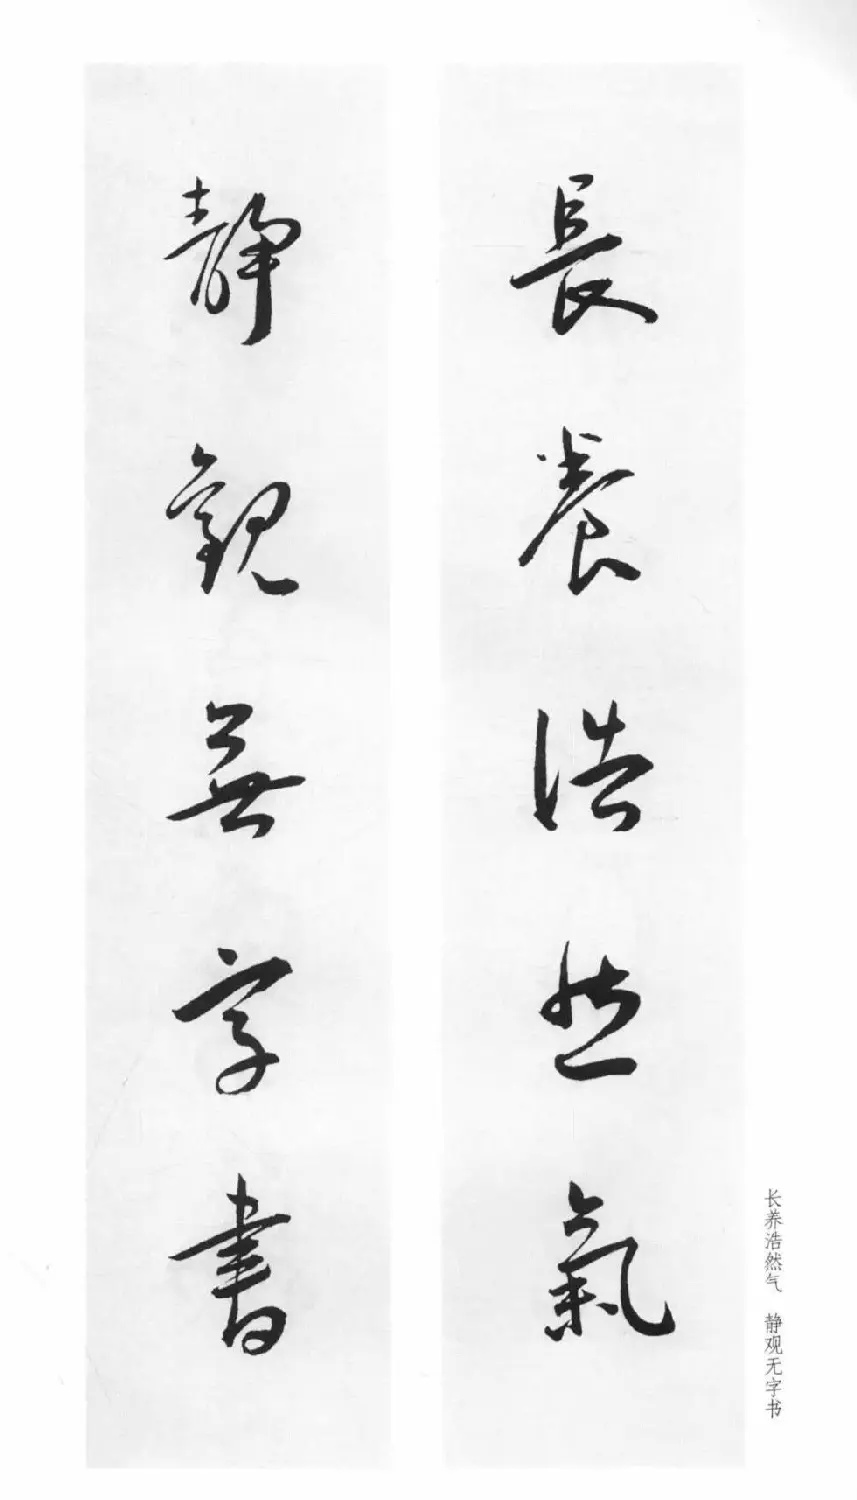 長養浩然氣
靜觀無字書
长养浩然气 静观无字书